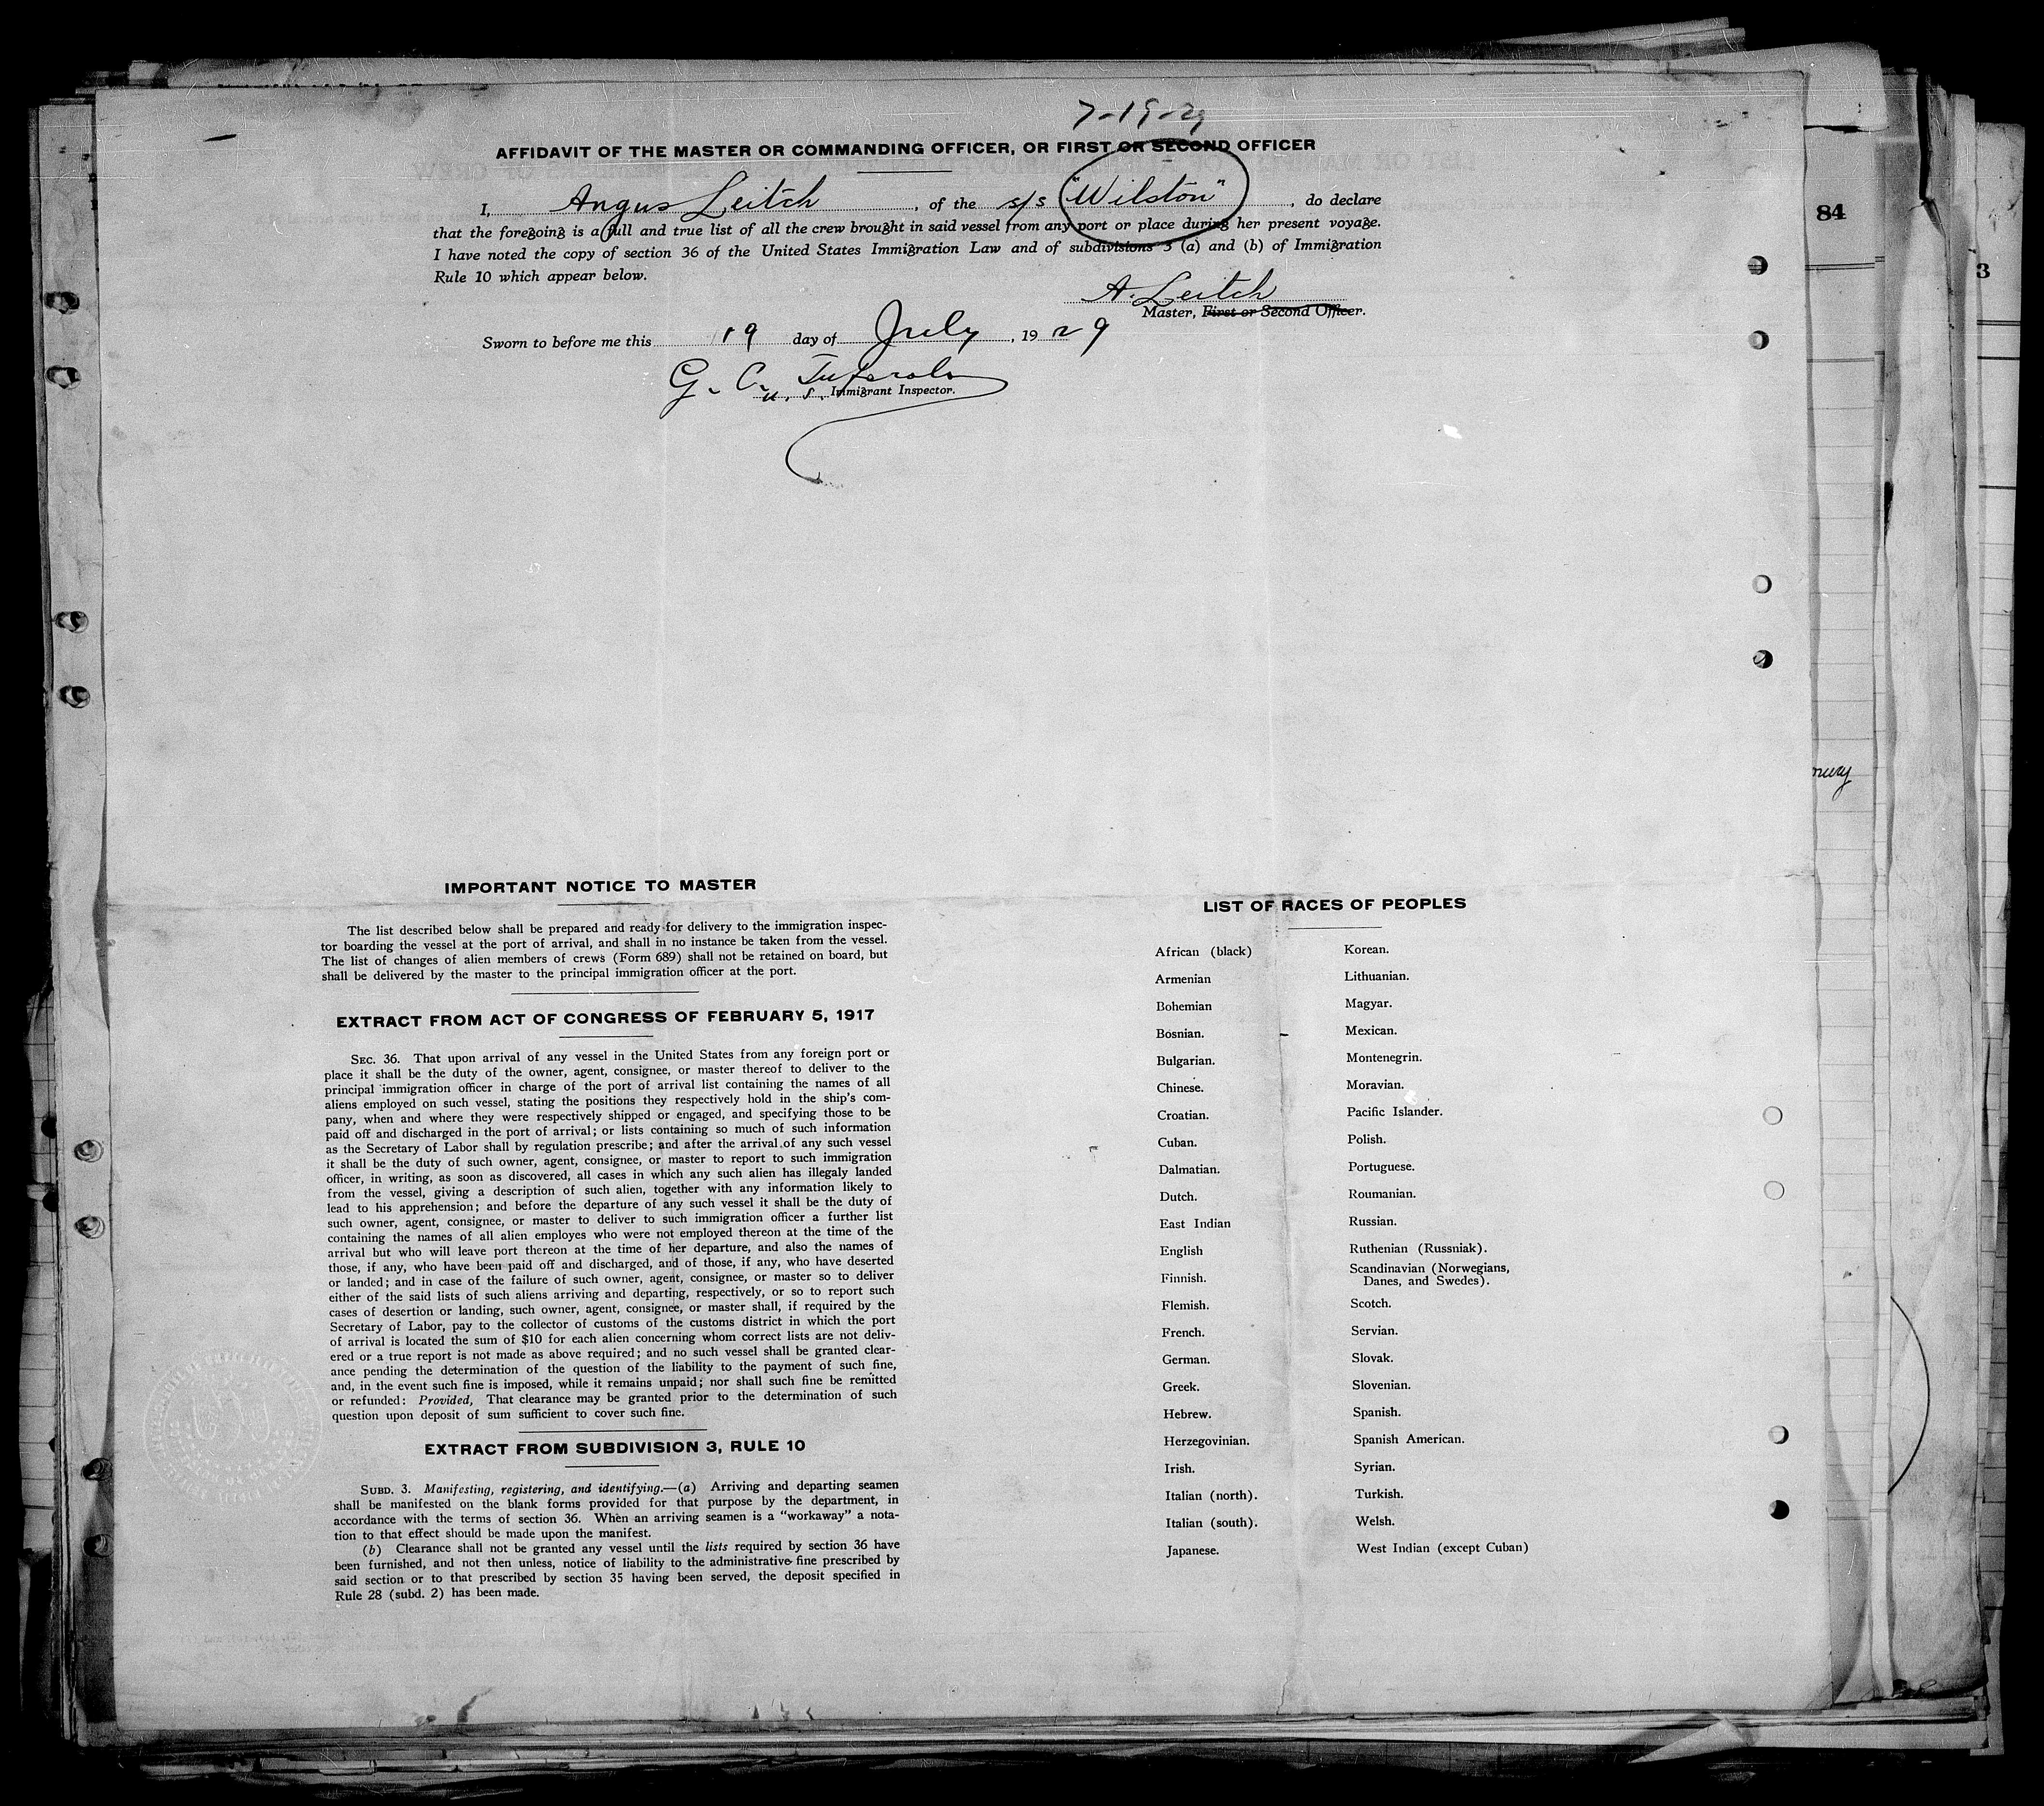 7-19-29
AFFIDAVIT OF THE MASTER OR COMMANDING OFFICER, OR FIRST OR SECOND OFFICER
I, Angus Leitch, of the s/s "Wilston", do declare
that the foregoing is a full and true list of all the crew brought in said vessel from any port or place during her present voyage.
I have noted the copy of section 36 of the United States Immigration Law and of subdivisions 3 (a) and (b) of Immigration
Rule 10 which appear below.
A. Leitch
Master, First or Second Officer.
Sworn to before me this 19 day of July, 1929
G. C.
U. S. Immigrant Inspector.
84
3
IMPORTANT NOTICE TO MASTER
The list described below shall be prepared and ready for delivery to the immigration inspec-
tor boarding the vessel at the port of arrival, and shall in no instance be taken from the vessel.
The list of changes of alien members of crews (Form 689) shall not be retained on board, but
shall be delivered by the master to the principal immigration officer at the port.
EXTRACT FROM ACT OF CONGRESS OF FEBRUARY 5, 1917
SEC. 36. That upon arrival of any vessel in the United States from any foreign port or
place it shall be the duty of the owner, agent, consignee, or master thereof to deliver to the
principal immigration officer in charge of the port of arrival list containing the names of all
aliens employed on such vessel, stating the positions they respectively hold in the ship's com-
pany, when and where they were respectively shipped or engaged, and specifying those to be
paid off and discharged in the port of arrival; or lists containing so much of such information
as the Secretary of Labor shall by regulation prescribe; and after the arrival of any such vessel
it shall be the duty of such owner, agent, consignee, or master to report to such immigration
officer, in writing, as soon as discovered, all cases in which any such alien has illegaly landed
from the vessel, giving a description of such alien, together with any information likely to
lead to his apprehension; and before the departure of any such vessel it shall be the duty of
such owner, agent, consignee, or master to deliver to such immigration officer a further list
containing the names of all alien employes who were not employed thereon at the time of the
arrival but who will leave port thereon at the time of her departure, and also the names of
those, if any, who have been paid off and discharged, and of those, if any, who have deserted
or landed; and in case of the failure of such owner, agent, consignee, or master so to deliver
either of the said lists of such aliens arriving and departing, respectively, or so to report such
cases of desertion or landing, such owner, agent, consignee, or master shall, if required by the
Secretary of Labor, pay to the collector of customs of the customs district in which the port
of arrival is located the sum of $10 for each alien concerning whom correct lists are not deliv-
ered or a true report is not made as above required; and no such vessel shall be granted clear-
ance pending the determination of the question of the liability to the payment of such fine,
and, in the event such fine is imposed, while it remains unpaid; nor shall such fine be remitted
or refunded: Provided, That clearance may be granted prior to the determination of such
question upon deposit of sum sufficient to cover such fine.
EXTRACT FROM SUBDIVISION 3, RULE 10
SUBD. 3. Manifesting, registering, and identifying.—(a) Arriving and departing seamen
shall be manifested on the blank forms provided for that purpose by the department, in
accordance with the terms of section 36. When an arriving seamen is a "workaway" a nota-
tion to that effect should be made upon the manifest.
(b) Clearance shall not be granted any vessel until the lists required by section 36 have
been furnished, and not then unless, notice of liability to the administrative fine prescribed by
said section or to that prescribed by section 35 having been served, the deposit specified in
Rule 28 (subd. 2) has been made.
LIST OF RACES OF PEOPLES
African (black)
Armenian
Bohemian
Bosnian.
Bulgarian.
Chinese.
Croatian.
Cuban.
Dalmatian.
Dutch.
East Indian
English
Finnish.
Flemish.
French.
German.
Greek.
Hebrew.
Herzegovinian.
Irish.
Italian (north).
Italian (south).
Japanese.
Korean.
Lithuanian.
Magyar.
Mexican.
Montenegrin.
Moravian.
Pacific Islander.
Polish.
Portuguese.
Roumanian.
Russian.
Ruthenian (Russniak).
Scandinavian (Norwegians,
Danes, and Swedes).
Scotch.
Servian.
Slovak.
Slovenian.
Spanish.
Spanish American.
Syrian.
Turkish.
Welsh.
West Indian (except Cuban)